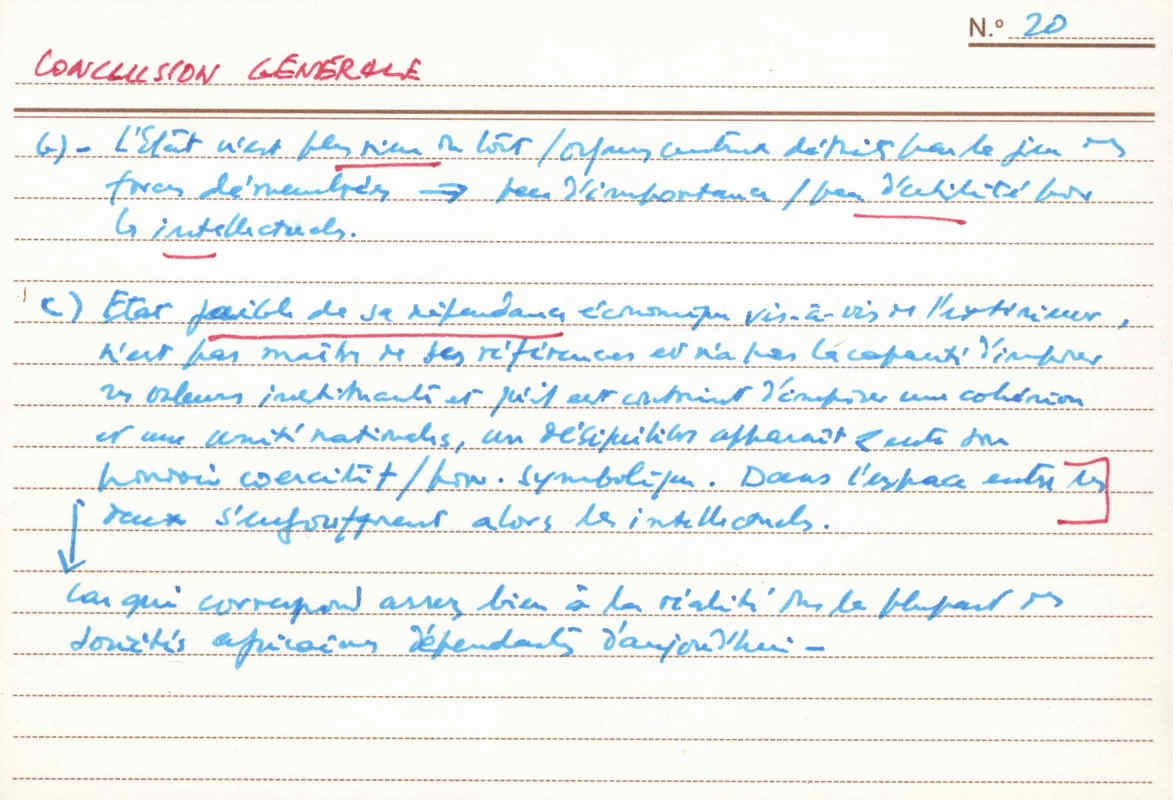 N.º 20
CONCLUSION GÉNÉRALE
b) - L'Etat n'est plus rien du tout / organes centraux détruits par le jeu des
forces démembrées → peu d'importance / peu d'utilité pour
les intellectuels.
c) Etat faible de sa dépendance économique vis-à-vis de l'extérieur,
n'est pas maître de ses références et n'a pas la capacité d'imposer
ses valeurs instituants et qu'il est contraint d'imposer une cohésion
et une unité nationales, un déséquilibre apparaît entre son
pouvoir coercitif / pouv. symbolique. Dans l'espace entre les
deux s'engouffrent alors les intellectuels.
Cas qui correspond assez bien à la réalité dans la plupart des
sociétés africaines dépendantes d'aujourd'hui -